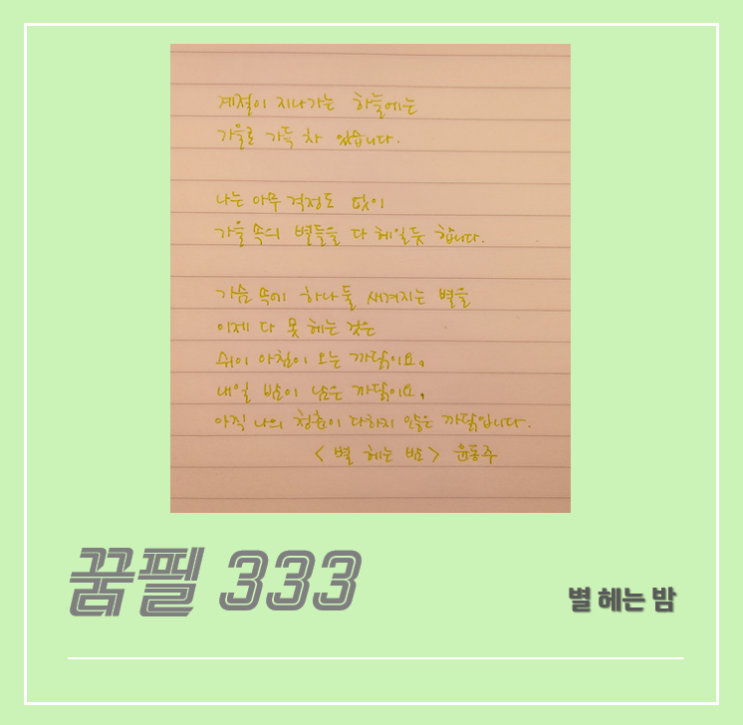 계절이 지나가는 하늘에는
가을로 가득 차 있습니다.
나는 아무 걱정도 없이
가을 속의 별들을 다 헤일듯 합니다.
가슴 속에 하나 둘 새겨지는 별을
이제 다 못 헤는 것은
쉬이 아침이 오는 까닭이요,
내일 밤이 남은 까닭이요,
아직 나의 청춘이 다하지 않은 까닭입니다.
<별 헤는 밤> 윤동주
꿈필 333
별 헤는 밤